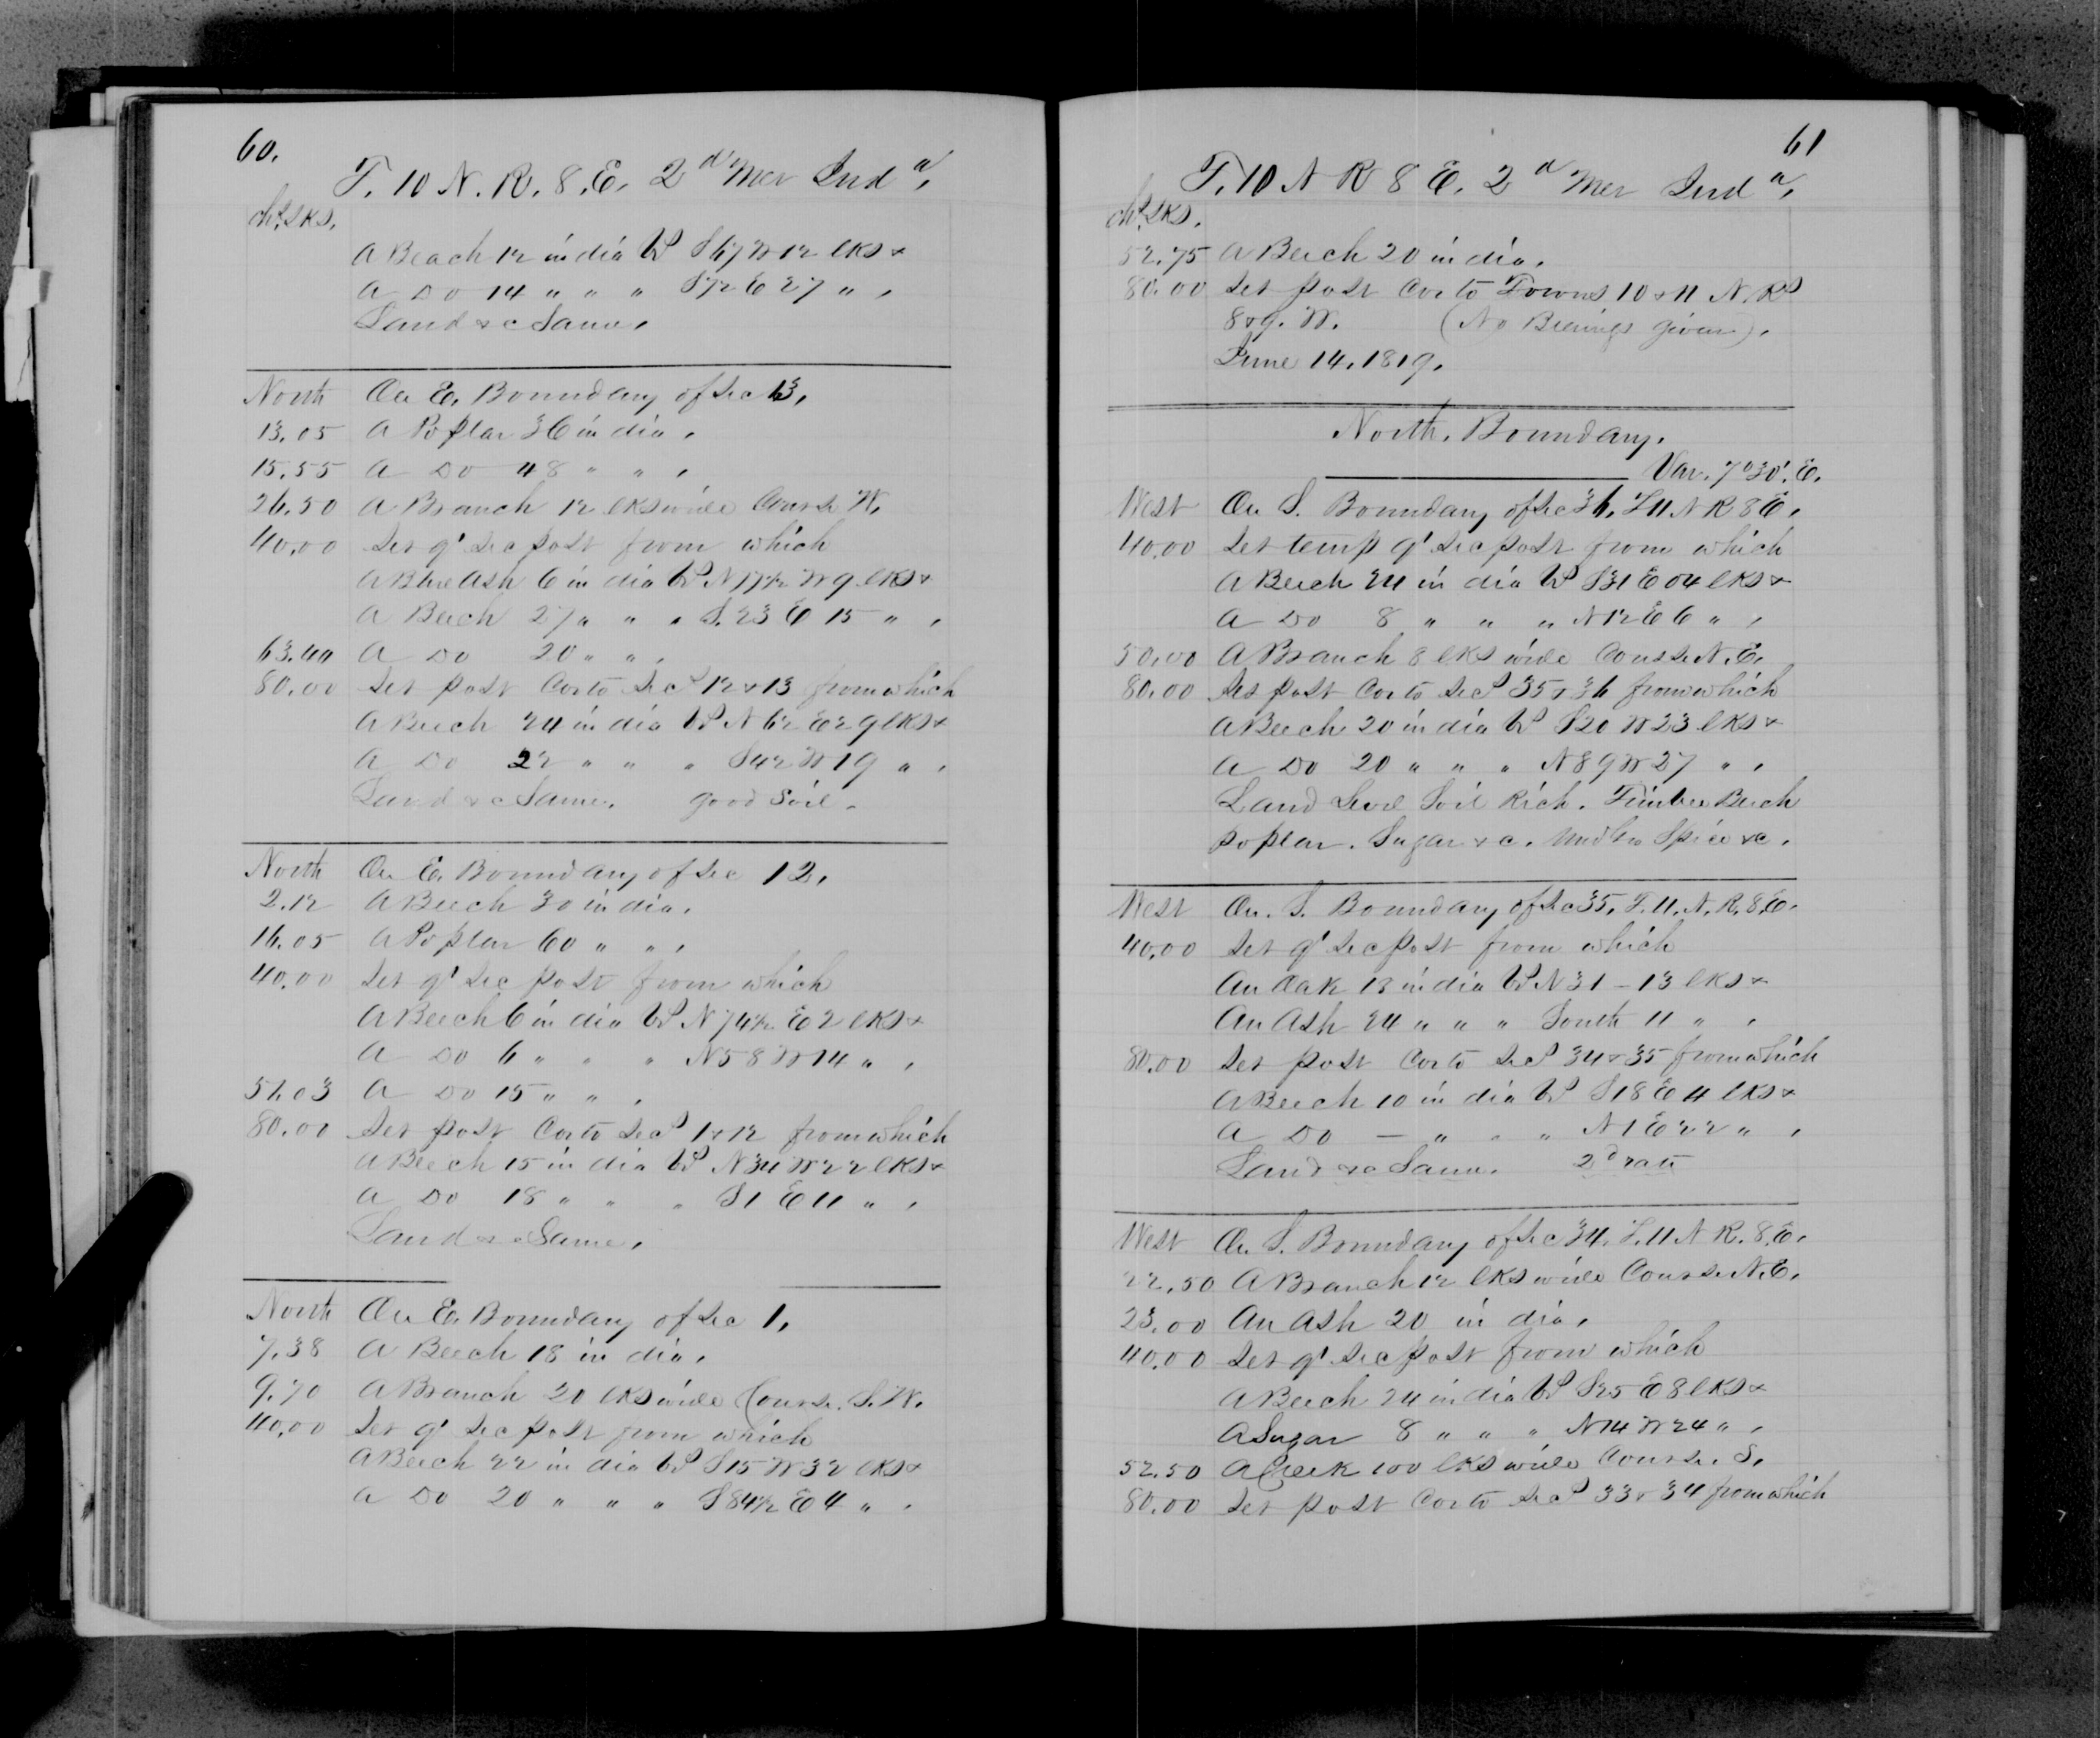 60.
T. 10 N. R. 8. E. 2d Mer Inda.
chs. lks.
A Beach 12 in dia Brs S 67 W 12 lks &
A Do 14 " " " S 72 E 27 " .
Land &c Same.
North On E. Boundary of Sec 13.
13.05 A Poplar 36 in dia.
15.55 A Do 48 " " .
26.50 A Branch 12 lks wide Course W.
40.00 Set qr Sec post from which
A Blue Ash 6 in dia Brs N 77½ W 9 lks &
A Beech 27 " " " S. 23 E 15 " .
63.40 A Do 20 " " .
80.00 Set post Cor to Secs 12 & 13 from which
A Beech 24 in dia Brs N 62 E 29 lks &
A Do 22 " " " S 42 W 19 " .
Land &c Same. good Soil.
North On E. Boundary of Sec 12.
2.12 A Beech 30 in dia.
16.05 A Poplar 60 " " .
40.00 Set qr Sec post from which
A Beech 6 in dia Brs N 74½ E 2 lks &
A Do 6 " " " N 58 W 14 " .
51.03 A Do 15 " " .
80.00 Set post Cor to Secs 1 & 12 from which
A Beech 15 in dia Brs N 34 W 22 lks &
A Do 18 " " " S 1 E 11 " .
Land &c Same.
North On E. Boundary of Sec 1.
7.38 A Beech 18 in dia.
9.70 A Branch 20 lks wide Course. S.W.
40.00 Set qr Sec post from which
A Beech 22 in dia Brs S 15 W 32 lks &
A Do 20 " " " S 84½ E 4 " .
61
T. 10 N R 8 E. 2d Mer Inda.
chs. lks.
52.75 A Beech 20 in dia.
80.00 Set post Cor to Towns 10 & 11 N. Rs
8 & 9. W. (No Bearings given).
June 14. 1819.
North. Boundary.
Var. 7° 30'. E.
West On S. Boundary of Sec 36. T 11 N R 8 E.
40.00 Set temp qr Sec post from which
A Beech 24 in dia Brs S 31 E 04 lks &
A Do 8 " " " N 12 E 6 " .
50.00 A Branch 8 lks wide Course N. E.
80.00 Set post Cor to Secs 35 & 36 from which
A Beech 20 in dia Brs S 20 W 23 lks &
A Do 20 " " " N 89 W 27 " .
Land Level Soil Rich. Timber Beech
poplar. Sugar &c. Und Gro Spice &c.
West On. S. Boundary of Sec 35. T. 11. N. R. 8. E.
40.00 Set qr Sec post from which
An Oak 13 in dia Brs N 31 – 13 lks &
An Ash 24 " " " South 11 " .
80.00 Set post Cor to Secs 34 & 35 from which
A Beech 10 in dia Brs S 18 E 4 lks &
A Do — " " " N 1 E 22 " .
Land &c Same. 2d rate
West On S. Boundary of Sec 34. T. 11 N R. 8. E.
22.50 A Branch 12 lks wide Course N. E.
23.00 An Ash 20 in dia.
40.00 Set qr Sec post from which
A Beech 24 in dia Brs S 25 E 8 lks &
A Sugar 8 " " " N 14 W 24 " .
52.50 A Creek 100 lks wide Course. S.
80.00 Set post Cor to Secs 33 & 34 from which